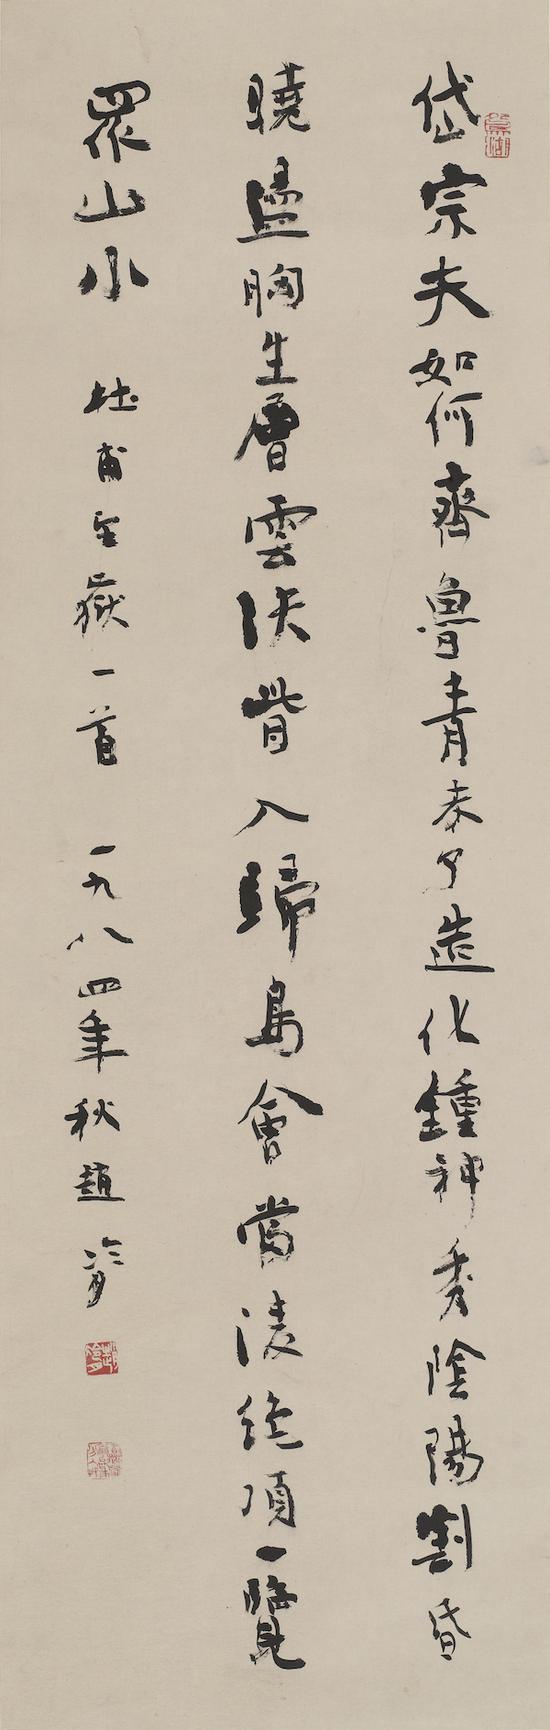 岱宗夫如何齊魯青未了造化鍾神秀陰陽割昏
曉盪胸生層雲決眥入歸鳥會當淩絕頂一覽
眾山小 杜甫望嶽一首 一九八四年秋趙冷月